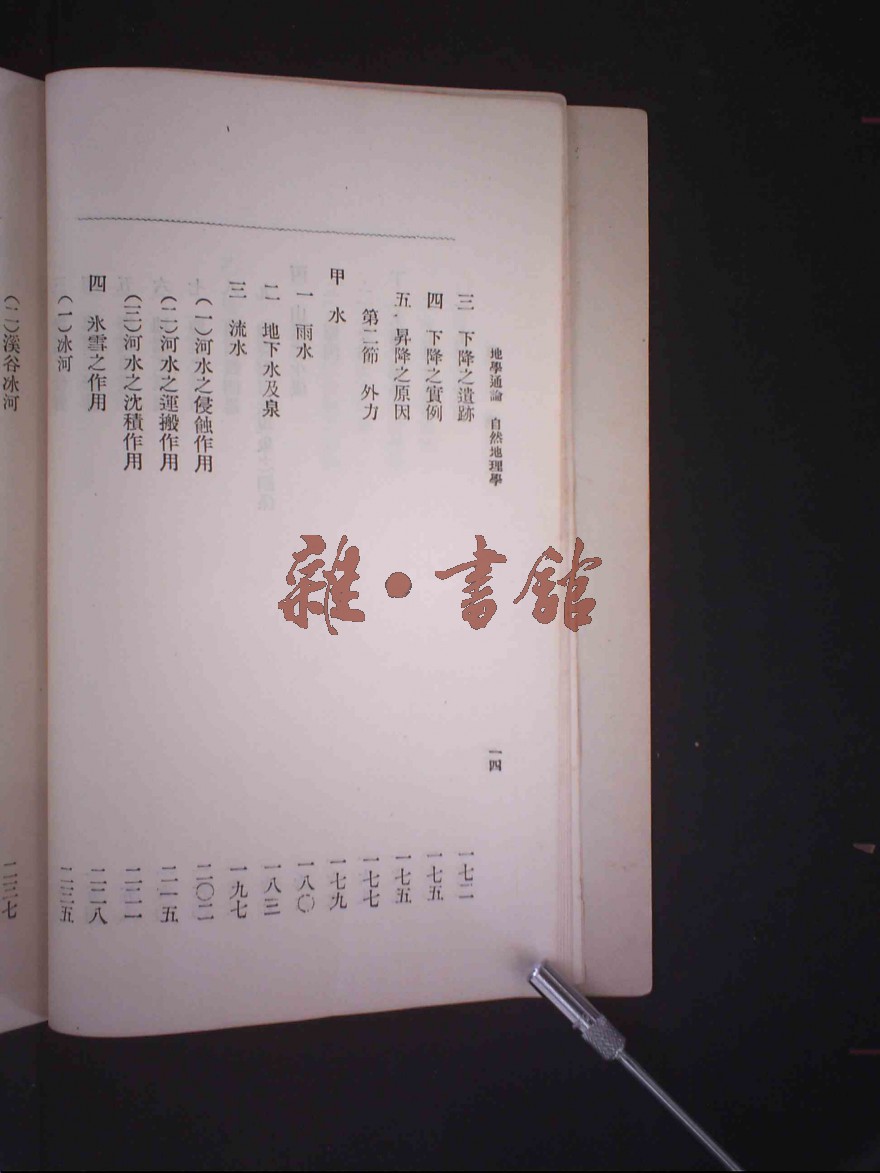 地學通論 自然地理學 一四
三 下降之遺跡 一七二
四 下降之實例 一七五
五 昇降之原因 一七五
第二節 外力 一七七
甲 水 一七九
一 雨水 一八〇
二 地下水及泉 一八三
三 流水 一九七
(一)河水之侵蝕作用 二〇二
(二)河水之運搬作用 二一五
(三)河水之沈積作用 二二一
四 氷雪之作用 二二八
(一)冰河 二三五
(二)溪谷冰河 二三七
雜·書館